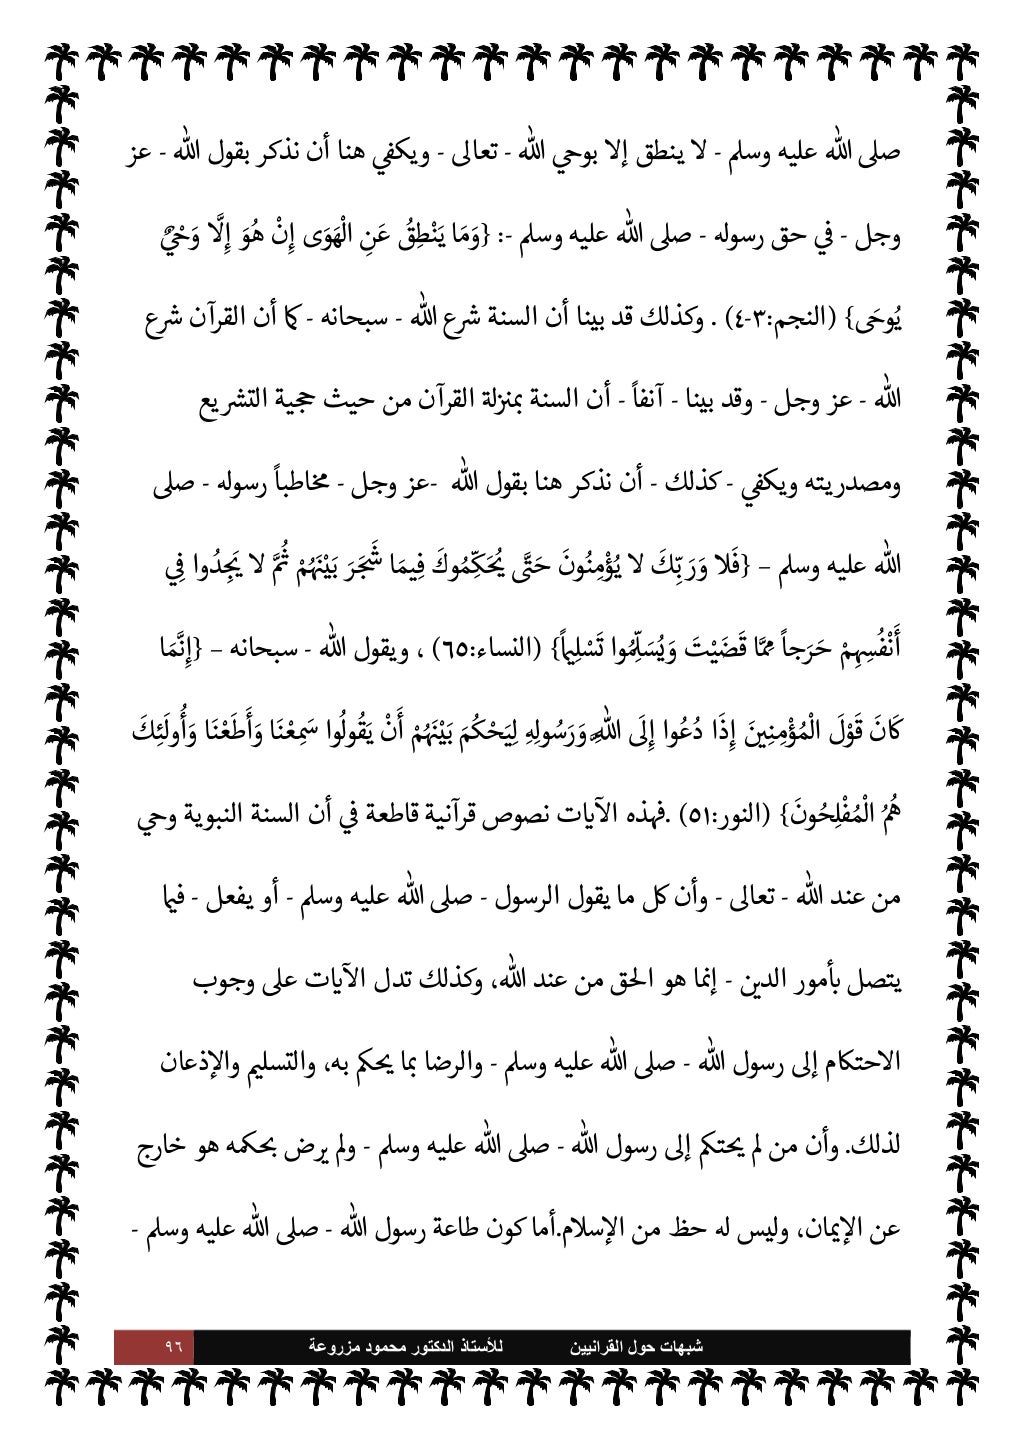 صلى الله عليه وسلم - لا ينطق إلا بوحي الله - تعالى - ويكفي هنا أن نذكر بقول الله - عز
وجل - في حق رسوله - صلى الله عليه وسلم -: {وَمَا يَنْطِقُ عَنِ الْهَوَى إِنْ هُوَ إِلَّا وَحْيٌ
يُوحَى} (النجم:٣-٤) . وكذلك قد بينا أن السنة شرع الله - سبحانه - كما أن القرآن شرع
الله - عز وجل - وقد بينا - آنفاً - أن السنة بمنزلة القرآن من حيث حجية التشريع
ومصدريته ويكفي - كذلك - أن نذكر هنا بقول الله -عز وجل - مخاطباً رسوله - صلى
الله عليه وسلم – {فَلا وَرَبِّكَ لا يُؤْمِنُونَ حَتَّى يُحَكِّمُوكَ فِيمَا شَجَرَ بَيْنَهُمْ ثُمَّ لا يَجِدُوا فِي
أَنْفُسِهِمْ حَرَجاً مِمَّا قَضَيْتَ وَيُسَلِّمُوا تَسْلِيماً} (النساء:٦٥) ، ويقول الله - سبحانه – {إِنَّمَا
كَانَ قَوْلَ الْمُؤْمِنِينَ إِذَا دُعُوا إِلَى اللهِ وَرَسُولِهِ لِيَحْكُمَ بَيْنَهُمْ أَنْ يَقُولُوا سَمِعْنَا وَأَطَعْنَا وَأُولَئِكَ
هُمُ الْمُفْلِحُونَ} (النور:٥١) .فهذه الآيات نصوص قرآنية قاطعة في أن السنة النبوية وحي
من عند الله - تعالى - وأن كل ما يقول الرسول - صلى الله عليه وسلم - أو يفعل - فيما
يتصل بأمور الدين - إنما هو الحق من عند الله، وكذلك تدل الآيات على وجوب
الاحتكام إلى رسول الله - صلى الله عليه وسلم - والرضا بما يحكم به، والتسليم والإذعان
لذلك. وأن من لم يحتكم إلى رسول الله - صلى الله عليه وسلم - ولم يرض بحكمه هو خارج
عن الإيمان، وليس له حظ من الإسلام.أما كون طاعة رسول الله - صلى الله عليه وسلم -
شبهات حول القرانيين للأستاذ الدكتور محمود مزروعة ٩٦